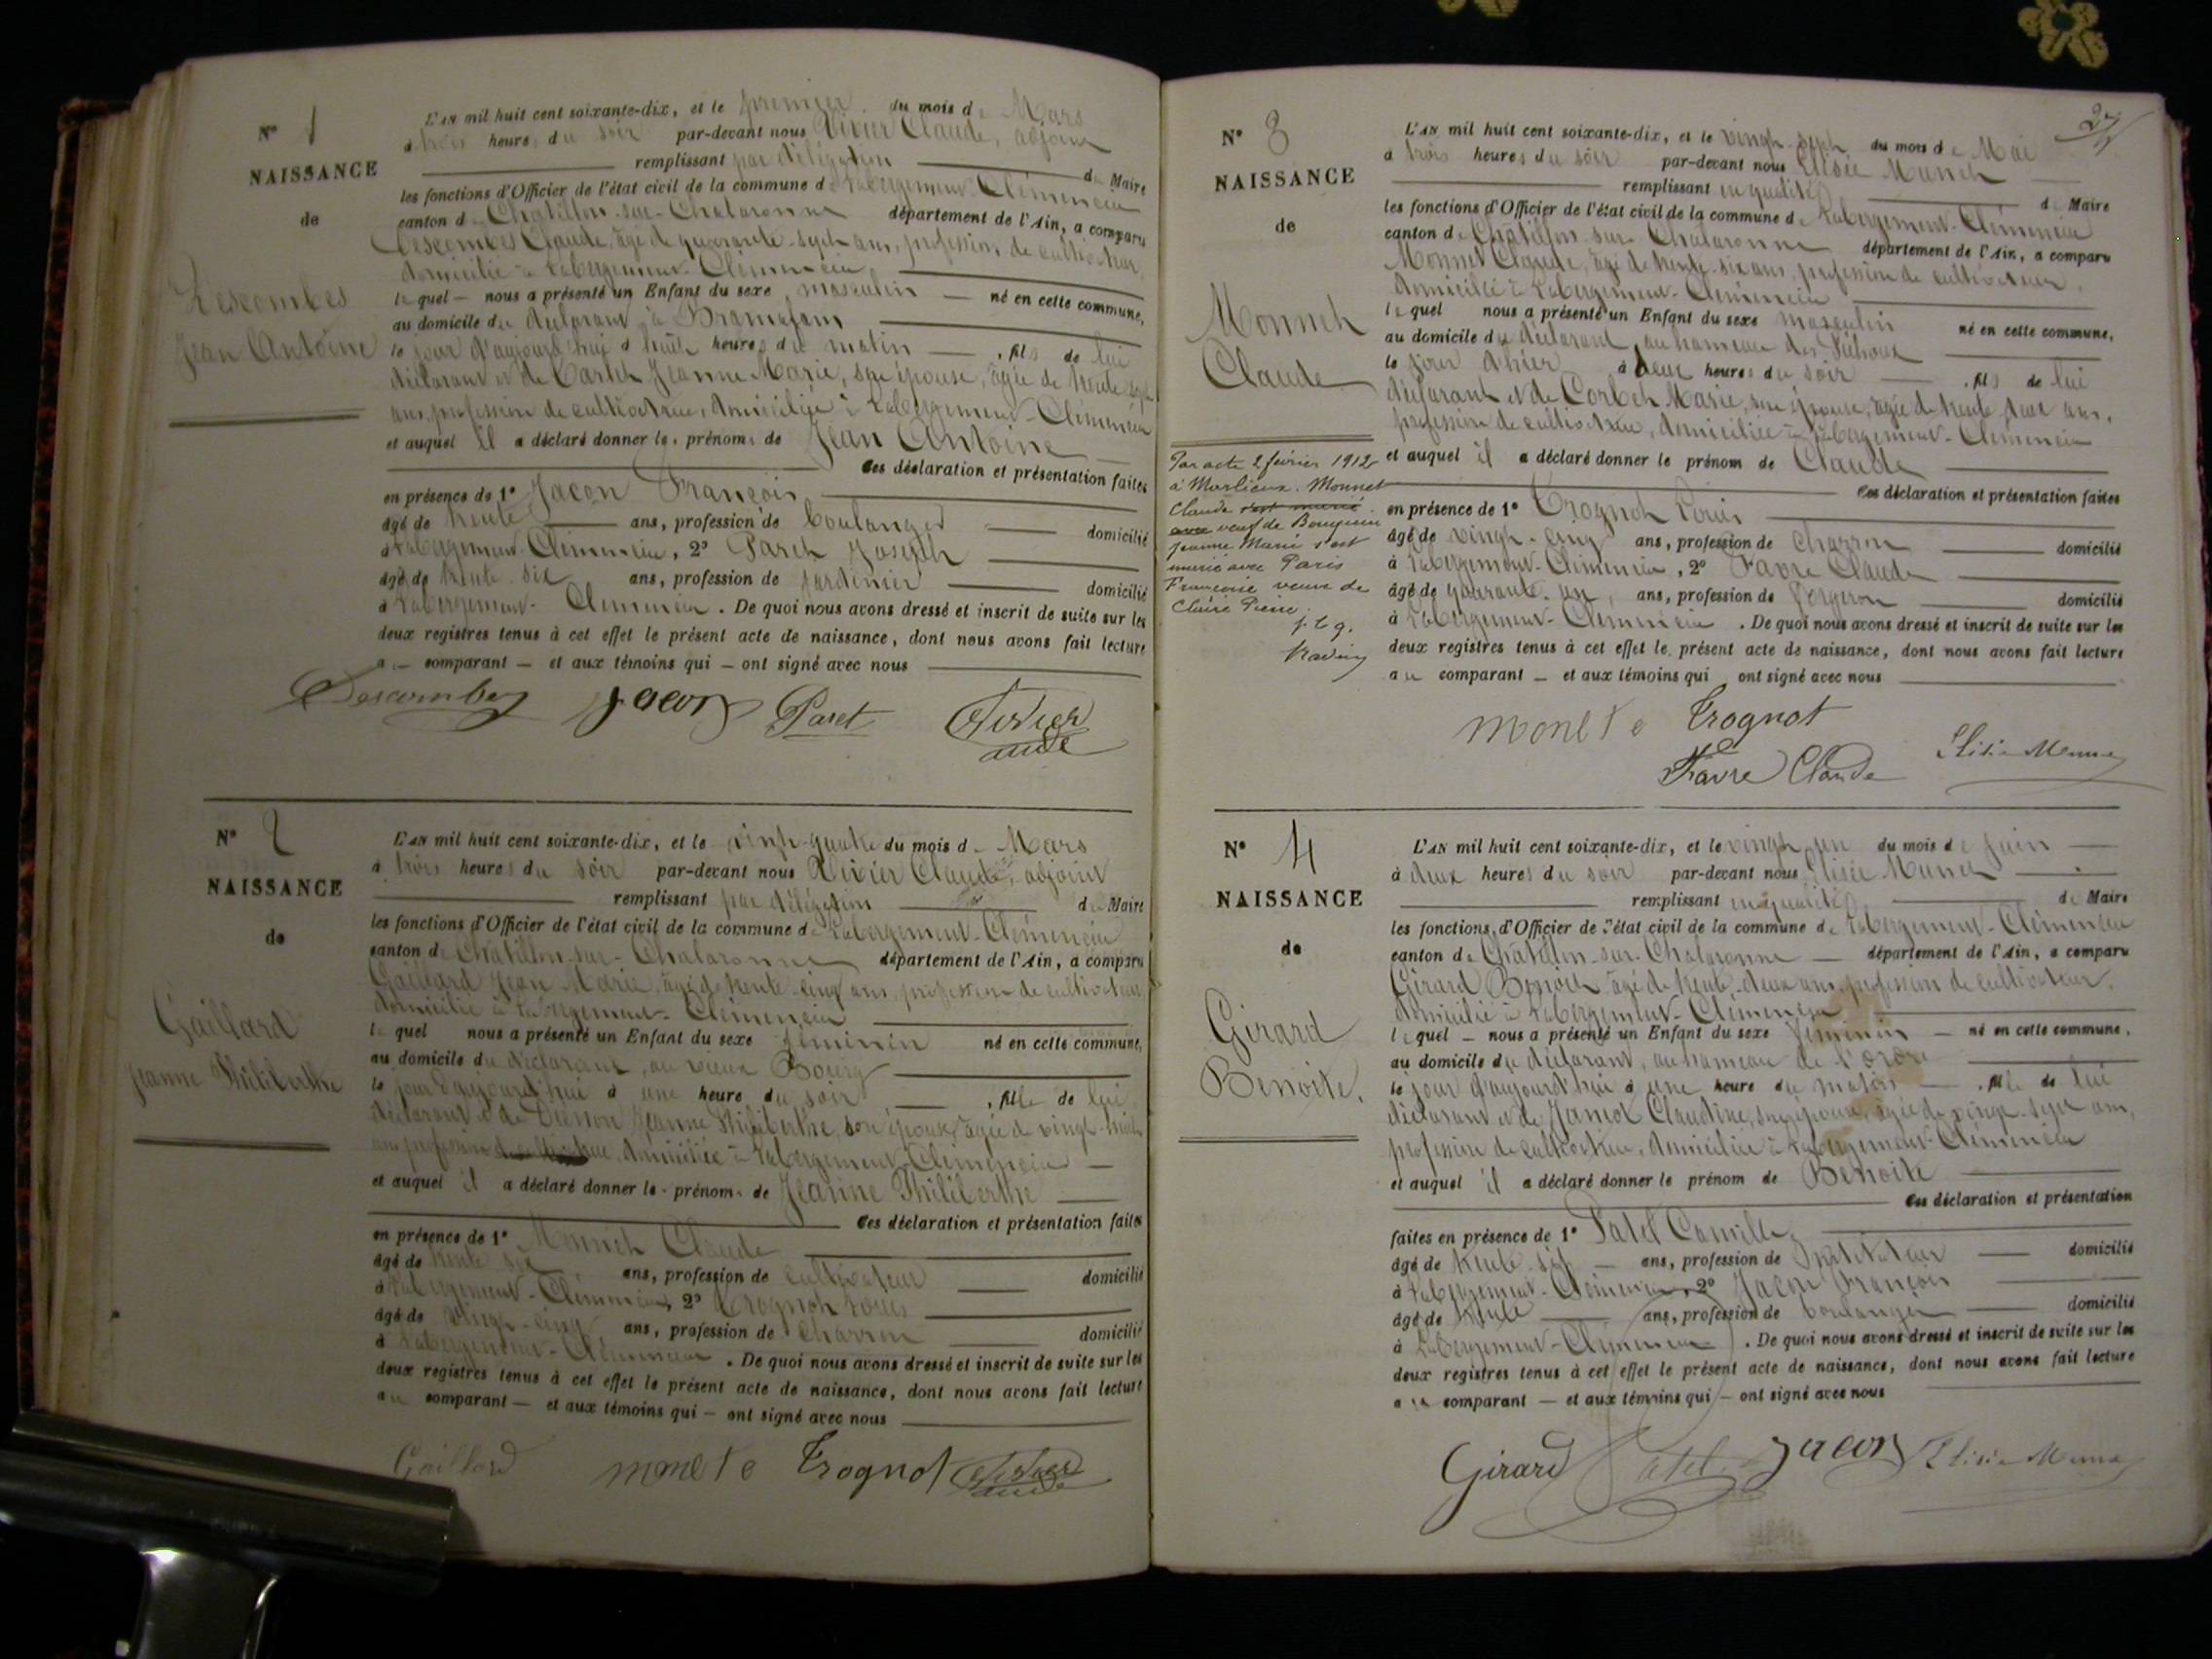 N° 1
NAISSANCE
de
Descombes
Jean Antoine
L'AN mil huit cent soixante-dix, et le premier du mois de Mars
à trois heures du soir par-devant nous Vivier Claude, adjoint
remplissant par délégation de Maire
les fonctions d'Officier de l'état civil de la commune de L'abergement-Clémencia
canton de Chatillon-sur-Chalaronne département de l'Ain, a comparu
Descombes Claude, âgé de quarante-sept ans, profession de cultivateur,
domicilié à L'abergement-Clémencia
lequel nous a présenté un Enfant du sexe masculin né en cette commune,
au domicile du déclarant à Bramafam
le jour d'aujourd'hui à huit heures du matin, fils de lui
déclarant et de Jeanne Marie, son épouse, âgée de trente-sept
ans, profession de cultivatrice, domiciliée à L'abergement-Clémencia
et auquel il a déclaré donner les prénoms de Jean Antoine
Ces déclaration et présentation faites
en présence de 1° Jacon François
âgé de trente ans, profession de boulanger domicilié
à L'abergement-Clémencia, 2° Paret Joseph
âgé de trente-six ans, profession de jardinier domicilié
à L'abergement-Clémencia. De quoi nous avons dressé et inscrit de suite sur les
deux registres tenus à cet effet le présent acte de naissance, dont nous avons fait lecture
au comparant et aux témoins qui ont signé avec nous
Descombes Jacon Paret Vivier
aude
N° 2
NAISSANCE
de
Gaillard
Jeanne Philiberthe
L'AN mil huit cent soixante-dix, et le vingt-quatre du mois de Mars
à trois heures du soir par-devant nous Vivier Claude, adjoint
remplissant par délégation de Maire
les fonctions d'Officier de l'état civil de la commune de L'abergement-Clémencia
canton de Chatillon-sur-Chalaronne département de l'Ain, a comparu
Gaillard Jean Marie, âgé de trente-cinq ans, profession de cultivateur,
domicilié à L'abergement-Clémencia
lequel nous a présenté un Enfant du sexe féminin né en cette commune,
au domicile du déclarant, au vieux Bourg
le jour d'aujourd'hui à une heure du soir, fille de lui
déclarant et de Jeanne Philiberthe, son épouse, âgée de vingt-huit
ans, profession de cultivatrice, domiciliée à L'abergement-Clémencia
et auquel il a déclaré donner les prénoms de Jeanne Philiberthe
Ces déclaration et présentation faites
en présence de 1° Monnet Claude
âgé de trente-six ans, profession de cultivateur domicilié
à L'abergement-Clémencia, 2° Trognot Louis
âgé de vingt-cinq ans, profession de charron domicilié
à L'abergement-Clémencia. De quoi nous avons dressé et inscrit de suite sur les
deux registres tenus à cet effet le présent acte de naissance, dont nous avons fait lecture
au comparant et aux témoins qui ont signé avec nous
Gaillard monete Trognot Vivier
aude
27
N° 3
NAISSANCE
de
Monnet
Claude
Par acte 2 février 1912
à Marlieux. Monnet
Claude s'est marié
avec veuf de
Jeanne Marie s'est
marié avec Paris
Françoise veuve de
Claire Pierre.
p. l. g.
L'AN mil huit cent soixante-dix, et le vingt-sept du mois de Mai
à trois heures du soir par-devant nous Elisée Munet
remplissant en qualité de Maire
les fonctions d'Officier de l'état civil de la commune de L'abergement-Clémencia
canton de Chatillon-sur-Chalaronne département de l'Ain, a comparu
Monnet Claude, âgé de trente-six ans, profession de cultivateur,
domicilié à L'abergement-Clémencia
lequel nous a présenté un Enfant du sexe masculin né en cette commune,
au domicile du déclarant, au hameau des
le jour d'hier à deux heures du soir, fils de lui
déclarant et de Corbet Marie, son épouse, âgée de trente-deux ans,
profession de cultivatrice, domiciliée à L'abergement-Clémencia
et auquel il a déclaré donner le prénom de Claude
Ces déclaration et présentation faites
en présence de 1° Trognot Louis
âgé de vingt-cinq ans, profession de charron domicilié
à L'abergement-Clémencia, 2° Favre Claude
âgé de quarante-un, ans, profession de forgeron domicilié
à L'abergement-Clémencia. De quoi nous avons dressé et inscrit de suite sur les
deux registres tenus à cet effet le présent acte de naissance, dont nous avons fait lecture
au comparant et aux témoins qui ont signé avec nous
monete Trognot
Favre Claude
N° 4
NAISSANCE
de
Girard
Benoite.
L'AN mil huit cent soixante-dix, et le vingt-un du mois de Juin
à deux heures du soir par-devant nous Elisée Munet
remplissant en qualité de Maire
les fonctions d'Officier de l'état civil de la commune de L'abergement-Clémencia
canton de Chatillon-sur-Chalaronne département de l'Ain, a comparu
Girard Benoit âgé de trente-deux ans, profession de cultivateur,
domicilié à L'abergement-Clémencia
lequel nous a présenté un Enfant du sexe féminin né en cette commune,
au domicile du déclarant, au hameau de
le jour d'aujourd'hui à une heure du matin, fille de lui
déclarant et de Claudine, son épouse, âgée de vingt-sept ans,
profession de cultivatrice, domiciliée à L'abergement-Clémencia
et auquel il a déclaré donner le prénom de Benoite
Ces déclaration et présentation
faites en présence de 1° Patel Camille
âgé de trente-six ans, profession de Instituteur domicilié
à L'abergement-Clémencia, 2° Jacon François
âgé de trente ans, profession de boulanger domicilié
à L'abergement-Clémencia. De quoi nous avons dressé et inscrit de suite sur les
deux registres tenus à cet effet le présent acte de naissance, dont nous avons fait lecture
au comparant et aux témoins qui ont signé avec nous
Girard Patel Jacon